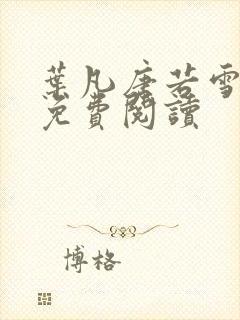 葉凡唐若雪
免費閱讀
博格